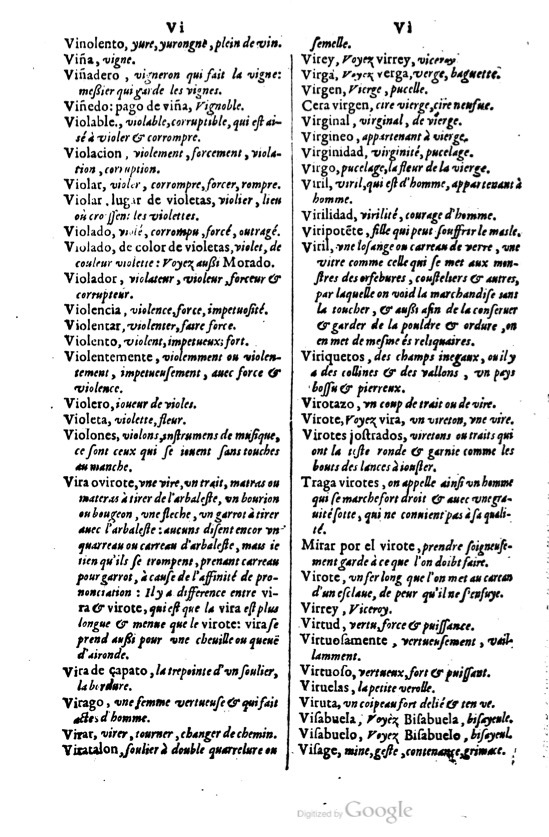 Vi
Vinolento, yure, yurongne, plein de vin.
Viña, vigne.
Viñadero, vigneron qui fait la vigne:
meßier qui garde les vignes.
Viñedo: pago de viña, Vignoble.
Violable., violable, corruptible, qui est ai-
sé à violer & corrompre.
Violacion, violement, forcement, viola-
tion, corruption.
Violar, violer, corrompre, forcer, rompre.
Violar, lugar de violetas, violier, lieu
où croissent les violettes.
Violado, violé, corrompu, forcé, outragé.
Violado, de color de violetas, violet, de
couleur violette: Voyez außi Morado.
Violador, violateur, violeur, forceur &
corrupteur.
Violencia, violence, force, impetuosité.
Violentar, violenter, faire force.
Violento, violent, impetueux, fort.
Violentemente, violemment ou violen-
tement, impetueusement, auec force &
violence.
Violero, ioueur de violes.
Violeta, violette, fleur.
Violones, violons, instrumens de musique,
ce sont ceux qui se iouent sans touches
au manche.
Vira o virote, vne vire, vn trait, matras ou
materas à tirer de l'arbaleste, vn bourion
ou bougeon, vne fleche, vn garrot à tirer
auec l'arbaleste: aucuns disent encor vn
quarreau ou carreau d'arbaleste, mais ie
tien qu'ils se trompent, prenant carreau
pour garrot, à cause de l'affinité de pro-
nonciation: Il y a difference entre vi-
ra & virote, qui est que la vira est plus
longue & menue que le virote: vira se
prend außi pour vne cheuille ou queuë
d'aironde.
Vira de çapato, la trepointe d'vn soulier,
la bordure.
Virago, vne femme vertueuse & qui fait
actes d'homme.
Virar, virer, tourner, changer de chemin.
Viratalon, soulier à double quarrelure ou
Vi
semelle.
Virey, Voyez virrey, viceroy
Virga, Voyez verga, verge, baguette.
Virgen, Vierge, pucelle.
Cera virgen, cire vierge, cire neufue.
Virginal, virginal, de vierge.
Virgineo, appartenant à vierge.
Virginidad, virginité, pucelage.
Virgo, pucelage, la fleur de la vierge.
Viril, viril, qui est d'homme, appartenant à
homme.
Virilidad, virilité, courage d'homme.
Viripotẽte, fille qui peut souffrir le masle.
Viril, vne losange ou carreau de verre, vne
vitre comme celle qui se met aux mon-
stres des orfebures, cousteliers & autres,
par laquelle on void la marchandise sans
la toucher, & außi afin de la conseruer
& garder de la pouldre & ordure, on
en met de mesme és reliquaires.
Viriquetos, des champs inegaux, ou il y
a des collines & des vallons, vn pays
bossu & pierreux.
Virotazo, vn coup de trait ou de vire.
Virote, Voyez vira, vn vireton, vne vire.
Virotes jostrados, viretons ou traits qui
ont la teste ronde & garnie comme les
bouts des lances à iouster.
Traga virotes, on appelle ainsi vn homme
qui se marche fort droit & auec vne gra-
uité sotte, qui ne conuient pas à sa quali-
té.
Mirar por el virote, prendre soigneuse-
ment garde à ce que l'on doibt faire.
Virote, vn fer long que l'on met au carcan
d'un esclaue, de peur qu'il ne s'enfuye.
Virrey, Viceroy.
Virtud, vertu, force & puissance.
Virtuosamente, vertueusement, vail-
lamment.
Virtuoso, vertueux, fort & puissant.
Viruelas, la petite verolle.
Viruta, vn coipeau fort delié & tenve.
Visabuela, Voyez Bisabuela, bisayeule.
Visabuelo, Voyez Bisabuelo, bisayeul.
Visage, mine, geste, contenance, grimace.
Digitized by Google